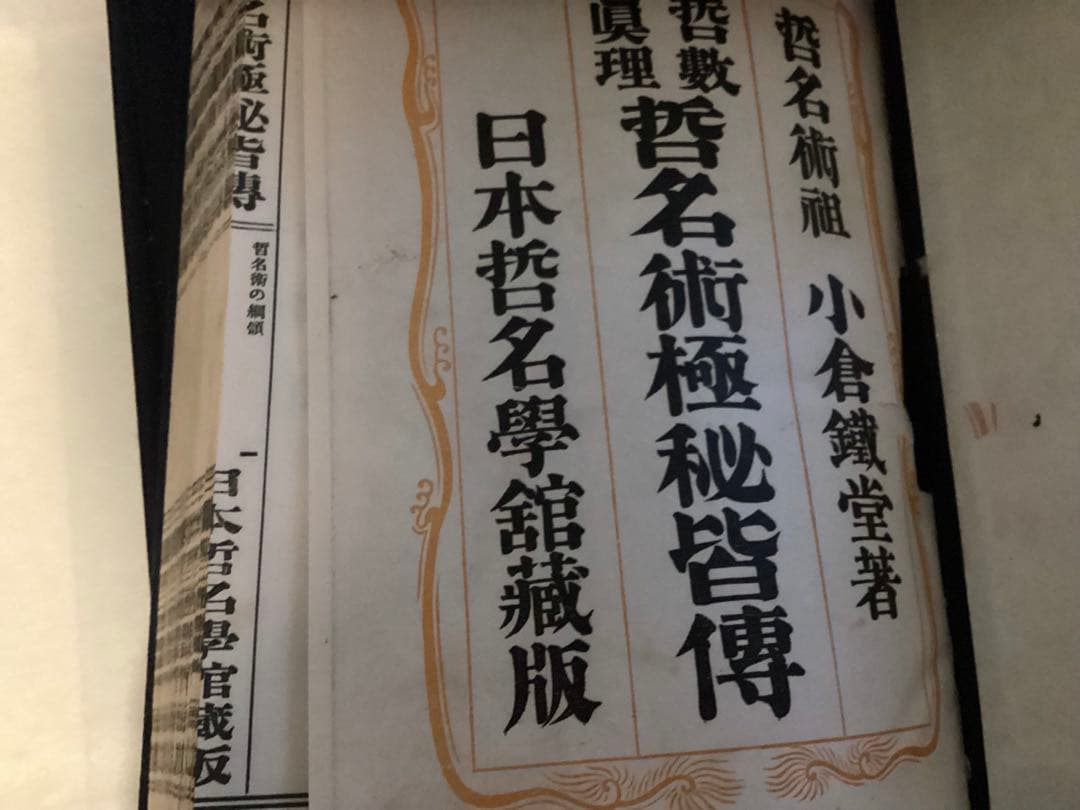 哲名術祖 小倉鐵堂著
哲數
眞理
哲名術極秘皆傳
日本哲名學舘藏版
名術極秘皆傳
哲名術の綱領
一
日本哲名學舘藏版